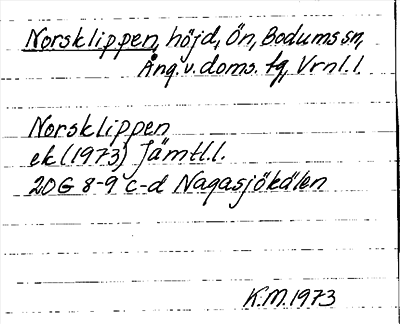 Norsklippen, höjd, Ön, Bodums sn,
Ång. v. doms. tg, Vrnl. l.
Norsklippen
ek (1973) Jämtl. l.
20G 8-9 c-d Nagasjökölen
K.M. 1973